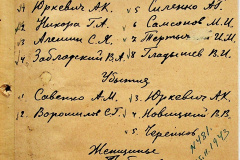 1 Юркевич А.К. 5 Силенко А.Г.
2 Цикора Г.А. 6 Самсонов М.И.
3 Алешин С.Я. 7 И.М.
4 Заблоцкий В.А. 8 Гладышев В.И.
Убытия
1 Савенко А.М. 3. Юркевич А.К.
2 Ворошилов С.Г. 4 Новицкий В.В.
5. Черенков
Женщины
№481
1943